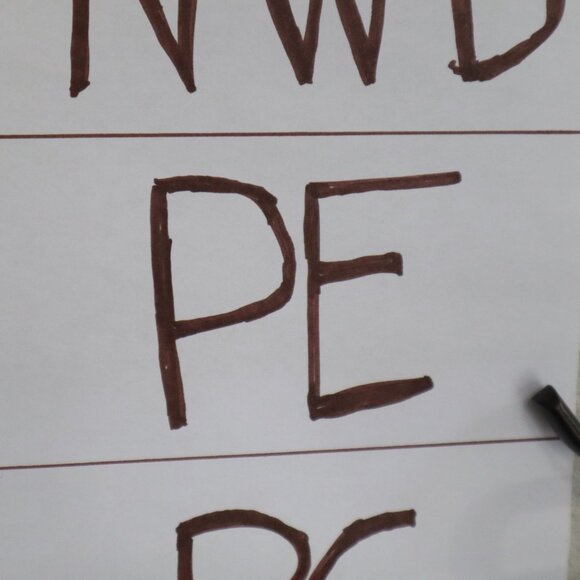 NWD
PE